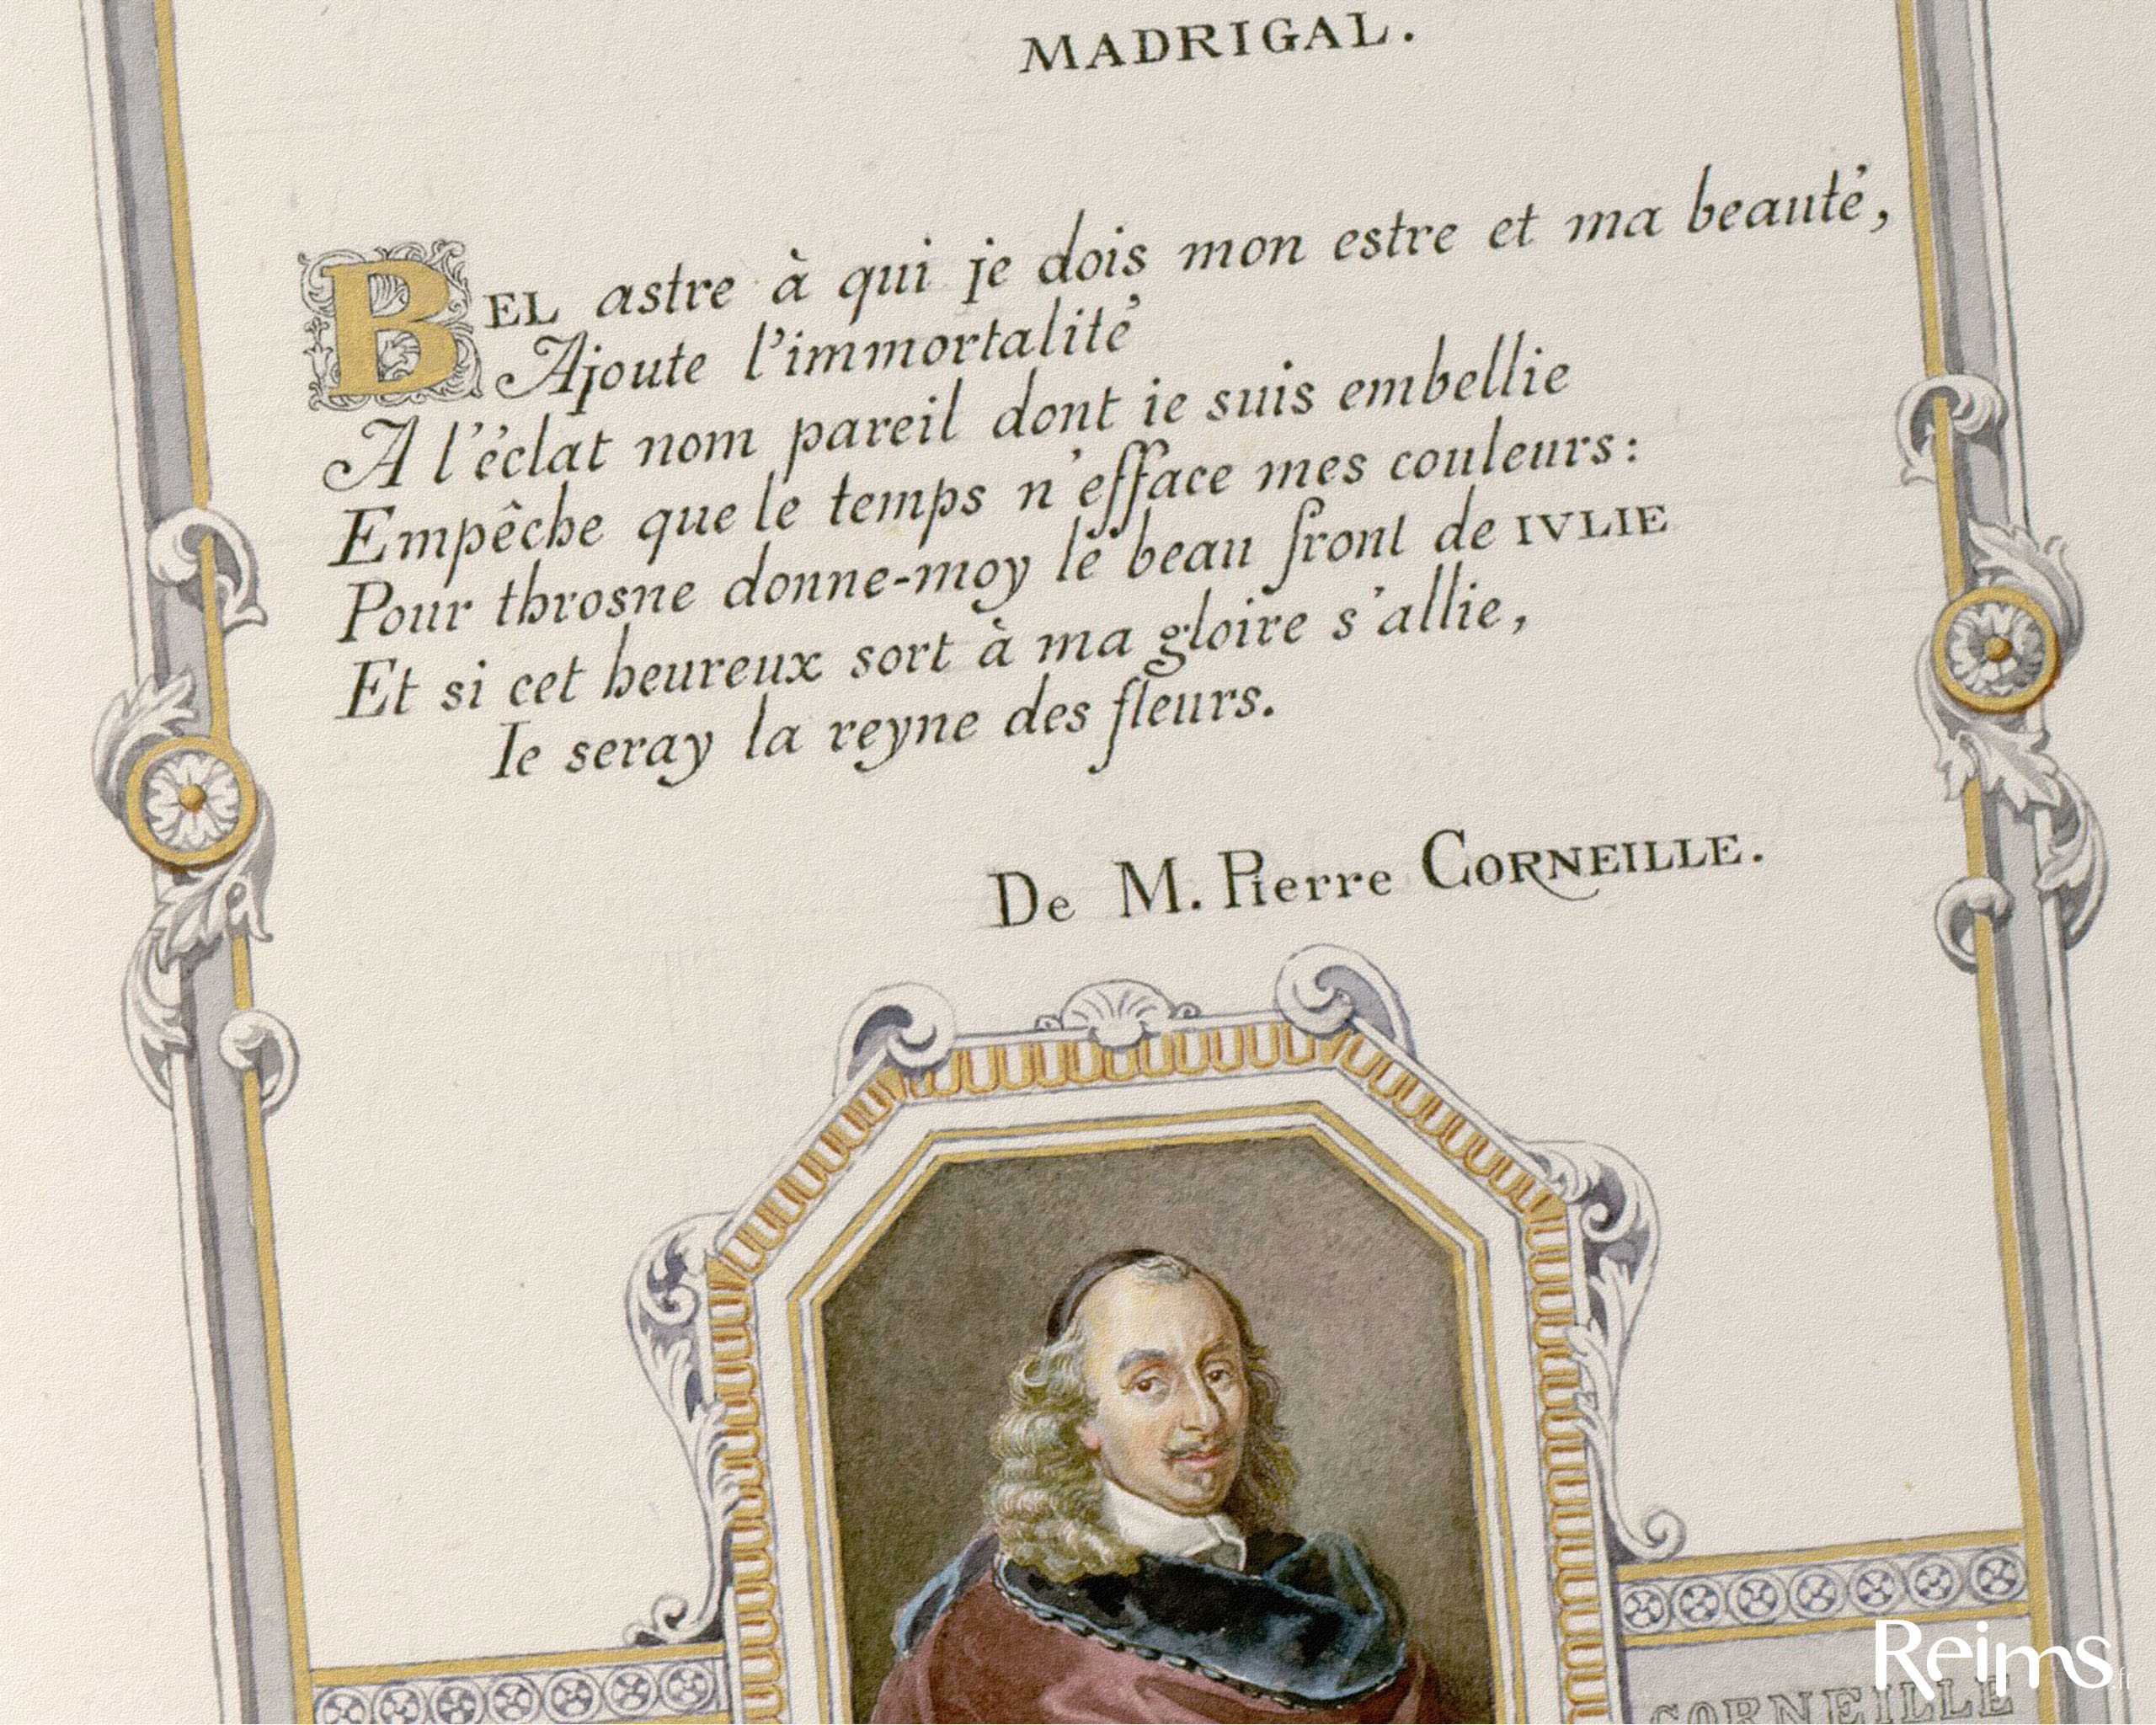 MADRIGAL.
BEL astre à qui je dois mon estre et ma beauté,
Ajoute l'immortalité
A l'éclat nom pareil dont ie suis embellie
Empêche que le temps n'efface mes couleurs:
Pour throsne donne-moy le beau front de IVLIE
Et si cet heureux sort à ma gloire s'allie,
Ie seray la reyne des fleurs.
De M. Pierre CORNEILLE.
CORNEILLE
Reims.fr